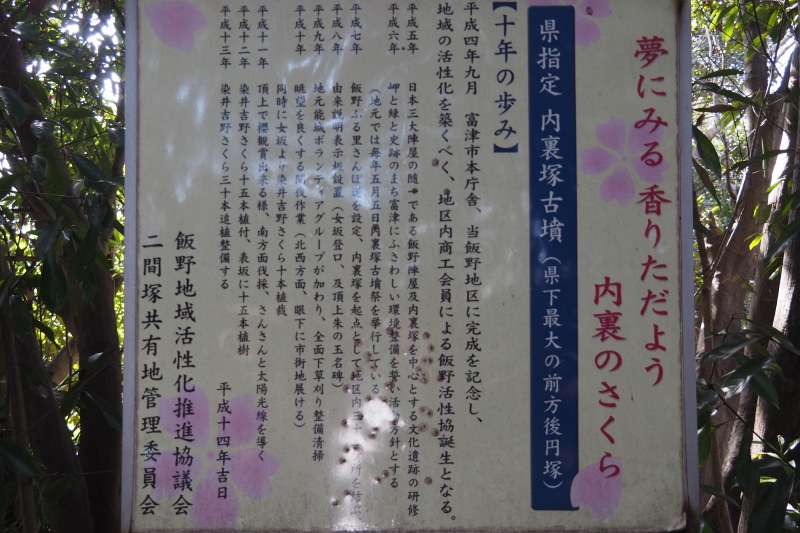 夢にみる 香りただよう
内裏のさくら
県指定 内裏塚古墳(県下最大の前方後円塚)
【十年の歩み】
平成四年九月 富津市本庁舎、当飯野地区に完成を記念し、
地域の活性化を築くべく、地区内商工会員による飯野活性協誕生となる。
平成五年 日本三大陣屋の随一である飯野陣屋及内裏塚を中心とする文化遺跡の研修
平成六年 岬と緑と史跡のまち富津にふさわしい環境整備を誓い活動方針とする
(地元では毎年五月五日内裏塚古墳祭を挙行している)
平成七年 飯野ふる里さんぽ道を設定、内裏塚を起点として地区内三十 所を結ぶ
平成八年 由来説明表示板設置(女坂登口、及頂上朱の玉名碑)
平成九年 地元能城ボランティアグループが加わり、全面下草刈り整備清掃
平成十年 眺望を良くする間伐作業(北西方面、眼下に市街地展ける)
同時に女坂より染井吉野さくら十本植栽
平成十一年 頂上で櫻観賞出来る様、南方面伐採 さんさんと太陽光線を導く
平成十二年 染井吉野さくら十五本植付、表坂に十五本植樹
平成十三年 染井吉野さくら三十本追植整備する
平成十四年吉日
飯野地域活性化推進協議会
二間塚共有地管理委員会